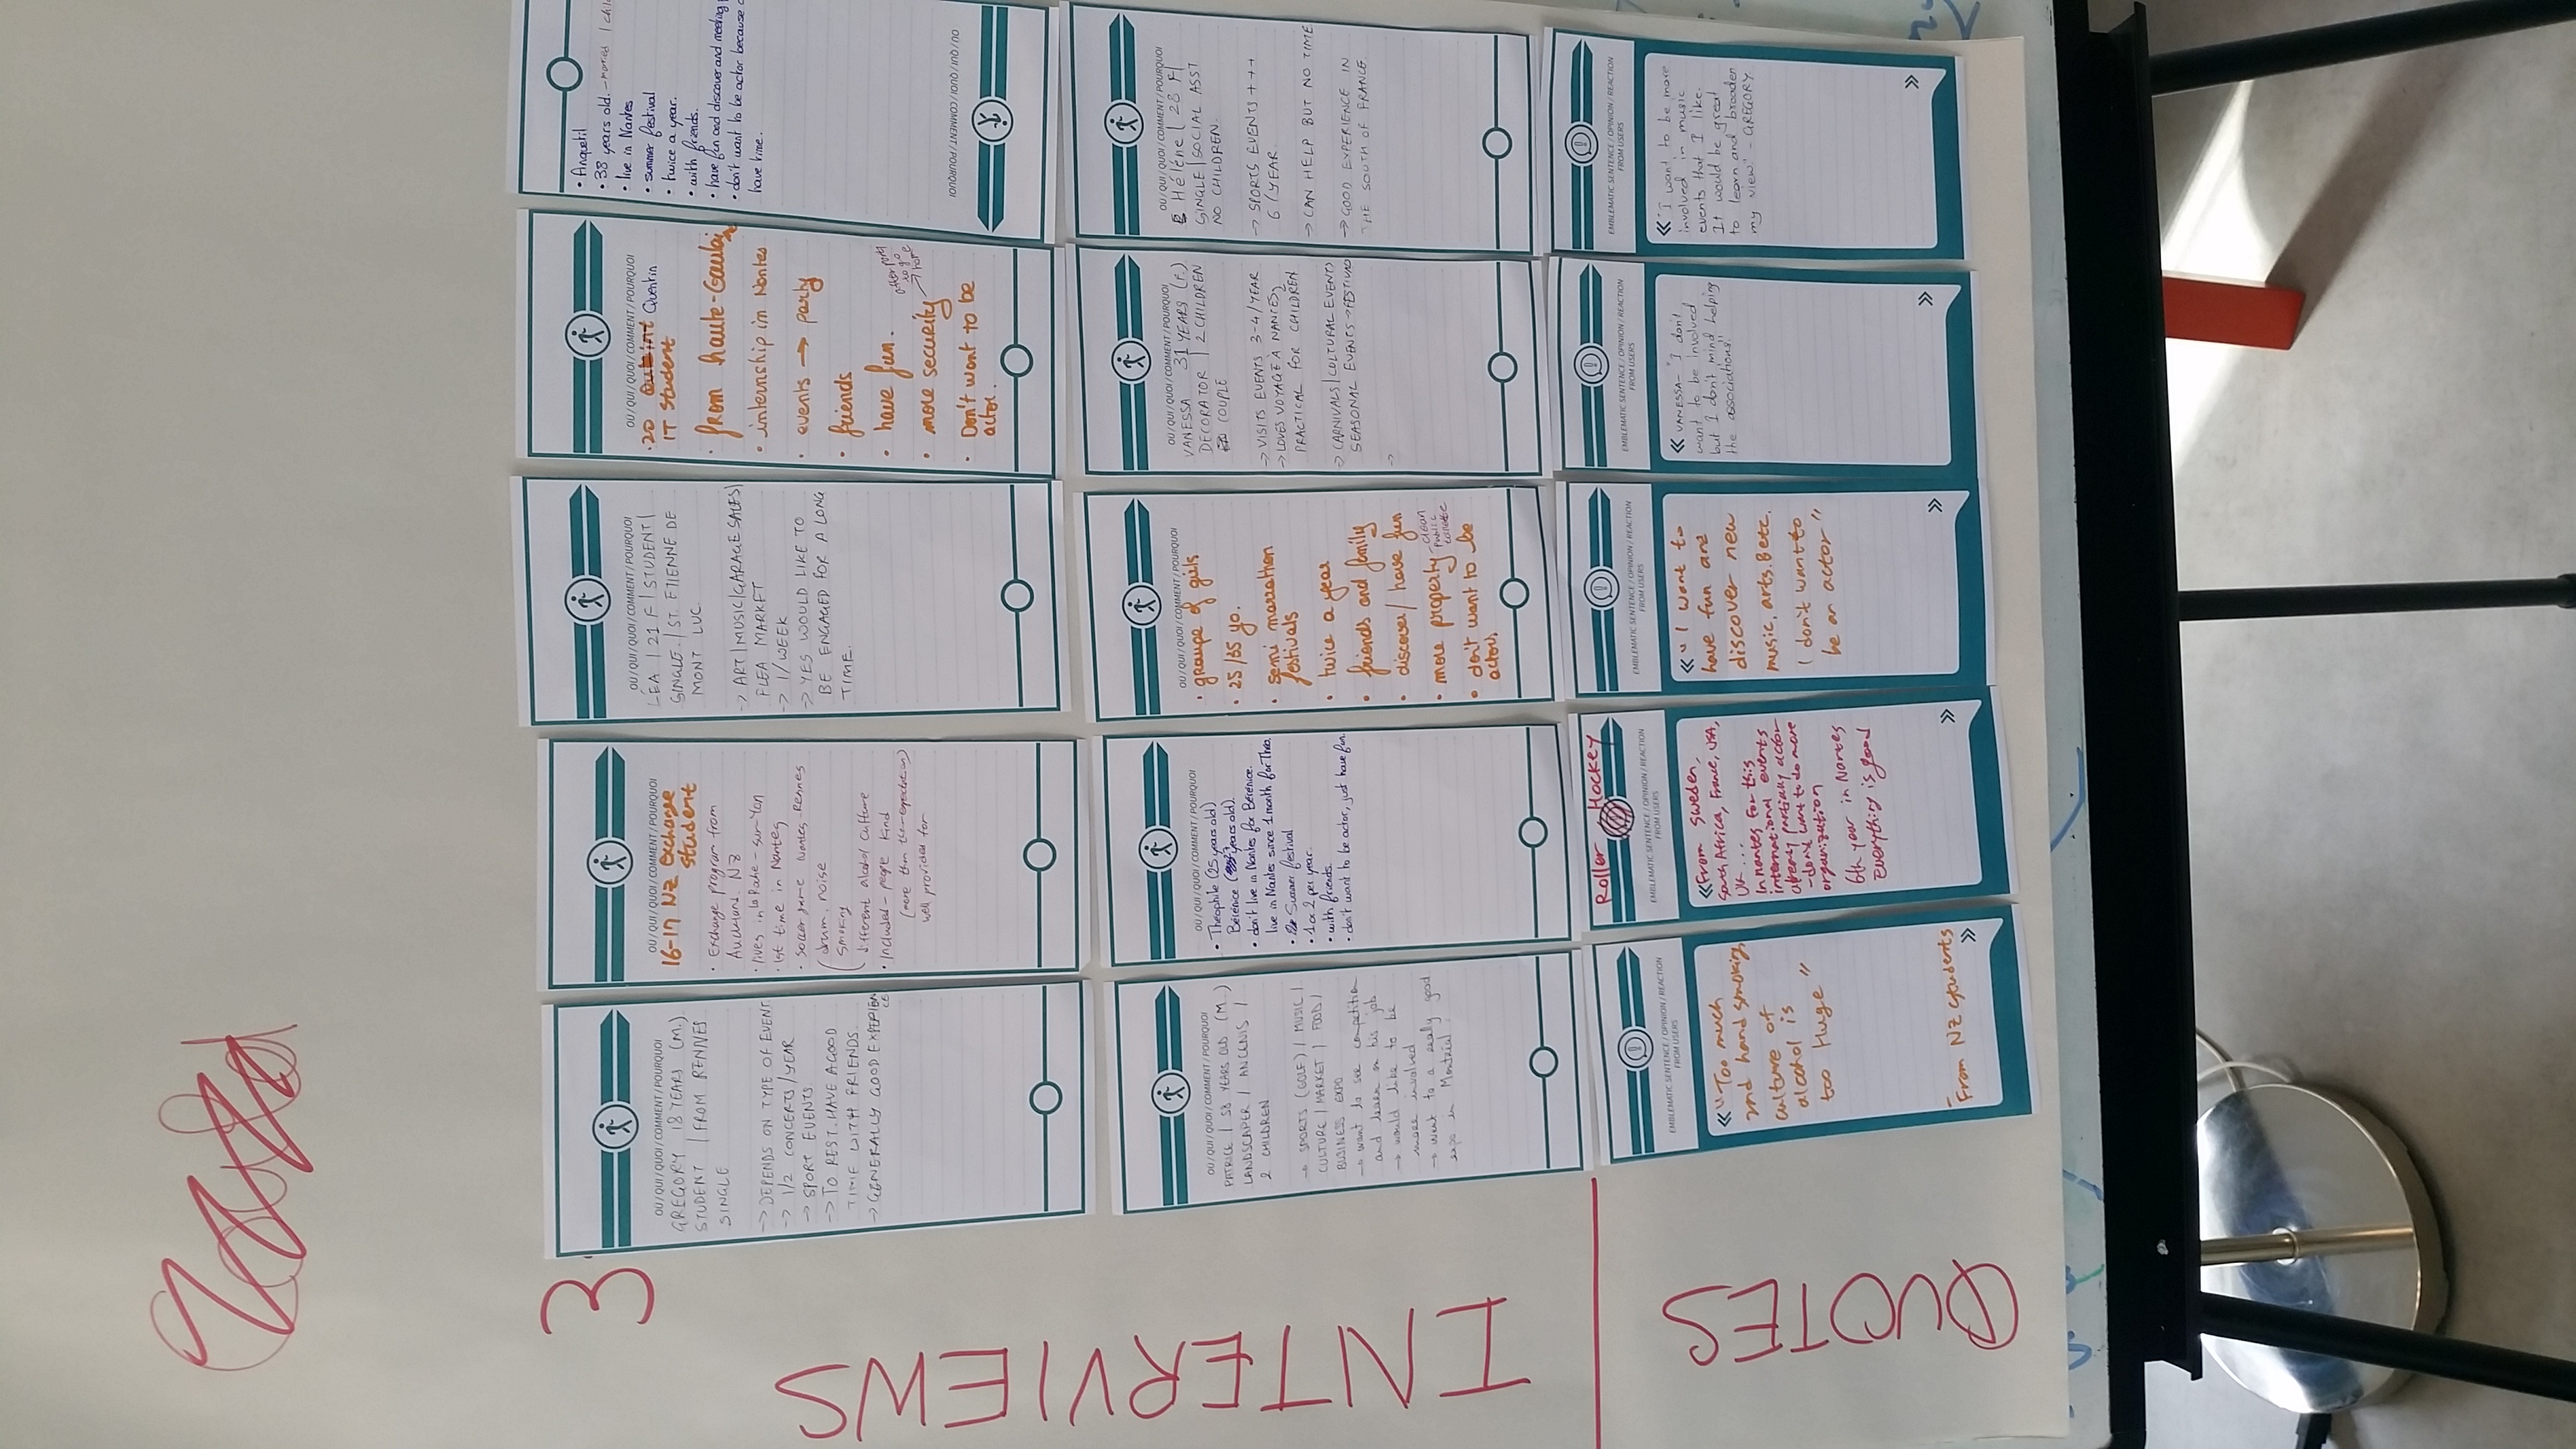 3
INTERVIEWS
OÙ / QUI / QUOI / COMMENT / POURQUOI
GREGORY 18 YEARS (M.)
STUDENT | FROM RENNES
SINGLE
-> DEPENDS ON TYPE OF EVENT
-> 1/2 CONCERTS / YEAR
-> SPORT EVENTS
-> TO REST. HAVE A GOOD
TIME WITH FRIENDS.
-> GENERALLY GOOD EXPERIEN
CE
OÙ / QUI / QUOI / COMMENT / POURQUOI
16-17 NZ Exchange
student
• Exchange program from
Auckland. NZ
• lives in la Roche-sur-Yon
• 1st time in Nantes
• Soccer game Nantes-Rennes
(drum, noise
smoking
different alcohol culture
• Included - people kind
(more than the expectation)
well provided for
OÙ / QUI / QUOI / COMMENT / POURQUOI
LÉA | 21 F | STUDENT |
SINGLE. | ST. ETIENNE DE
MONT LUC.
-> ART | MUSIC | GARAGE SALES |
FLEA MARKET
-> 1/WEEK
-> YES WOULD LIKE TO
BE ENGAGED FOR A LONG
TIME.
OÙ / QUI / QUOI / COMMENT / POURQUOI
• 20 Quentin
IT student
• from haute-Goulaine
• internship in Nantes
• events → party
• friends
• have fun.
• more security
• Don't want to be
actor.
• Anquetil
• 38 years old. - married 1 chil
• live in Nantes
• summer festival
• twice a year.
• with friends.
• have fun and discover and meeting
• don't want to be actor because
have time.
OÙ / QUI / QUOI / COMMENT / POURQUOI
OÙ / QUI / QUOI / COMMENT / POURQUOI
PATRICE | 58 YEARS OLD (M.)
LANDSCAPER | ANCENIS |
2 CHILDREN
→ SPORTS (GOLF) | MUSIC |
CULTURE | MARKET | FOOD |
BUSINESS EXPO
→ want to see competition
and learn on his job
→ would like to be
more involved
→ went to a really good
expo in Montréal.
OÙ / QUI / QUOI / COMMENT / POURQUOI
• Théophile (25 years old)
Bérénice (years old).
• don't live in Nantes for Bérénice.
live in Nantes since 1 month for Théo.
• Summer festival
• 1 or 2 per year.
• with friends.
• don't want to be actor, just have fun.
OÙ / QUI / QUOI / COMMENT / POURQUOI
• groupe of girls
• 25/35 yo.
• semi marathon
festivals
• twice a year
• friends and family
• discover / have fun
• more property
clean
public
• don't want to be
actors.
OÙ / QUI / QUOI / COMMENT / POURQUOI
VANESSA 31 YEARS (F.)
DECORATOR | 2 CHILDREN
COUPLE
-> VISITS EVENTS 3-4/YEAR
-> LOVES VOYAGE À NANTES
PRACTICAL FOR CHILDREN
-> CARNIVALS | CULTURAL EVENTS
SEASONAL EVENTS ->
->
OÙ / QUI / QUOI / COMMENT / POURQUOI
Hélène | 28 F |
SINGLE | SOCIAL ASST
NO CHILDREN.
-> SPORTS EVENTS +++
6 / YEAR.
-> CAN HELP BUT NO TIME
-> GOOD EXPERIENCE IN
THE SOUTH OF FRANCE.
QUOTES
EMBLEMATIC SENTENCE / OPINION / REACTION
FROM USERS
« "Too much
and hand smoking
culture of
alcohol is
too Huge"
- From NZ students
»
Roller Hockey
EMBLEMATIC SENTENCE / OPINION / REACTION
FROM USERS
« From Sweden,
South Africa, France, USA,
UK ...
In Nantes for this
international events
already partiay actor
- don't want to do more
organization
6th year in Nantes
everything is good
»
EMBLEMATIC SENTENCE / OPINION / REACTION
FROM USERS
« "I want to
have fun and
discover new
music, arts.
I don't want to
be an actor"
»
EMBLEMATIC SENTENCE / OPINION / REACTION
FROM USERS
« VANESSA - "I don't
want to be involved
but I don't mind helping
the associations"
»
EMBLEMATIC SENTENCE / OPINION / REACTION
FROM USERS
« "I want to be more
involved in music
events that I like.
It would be great
to learn and broaden
my view" - GREGORY
»